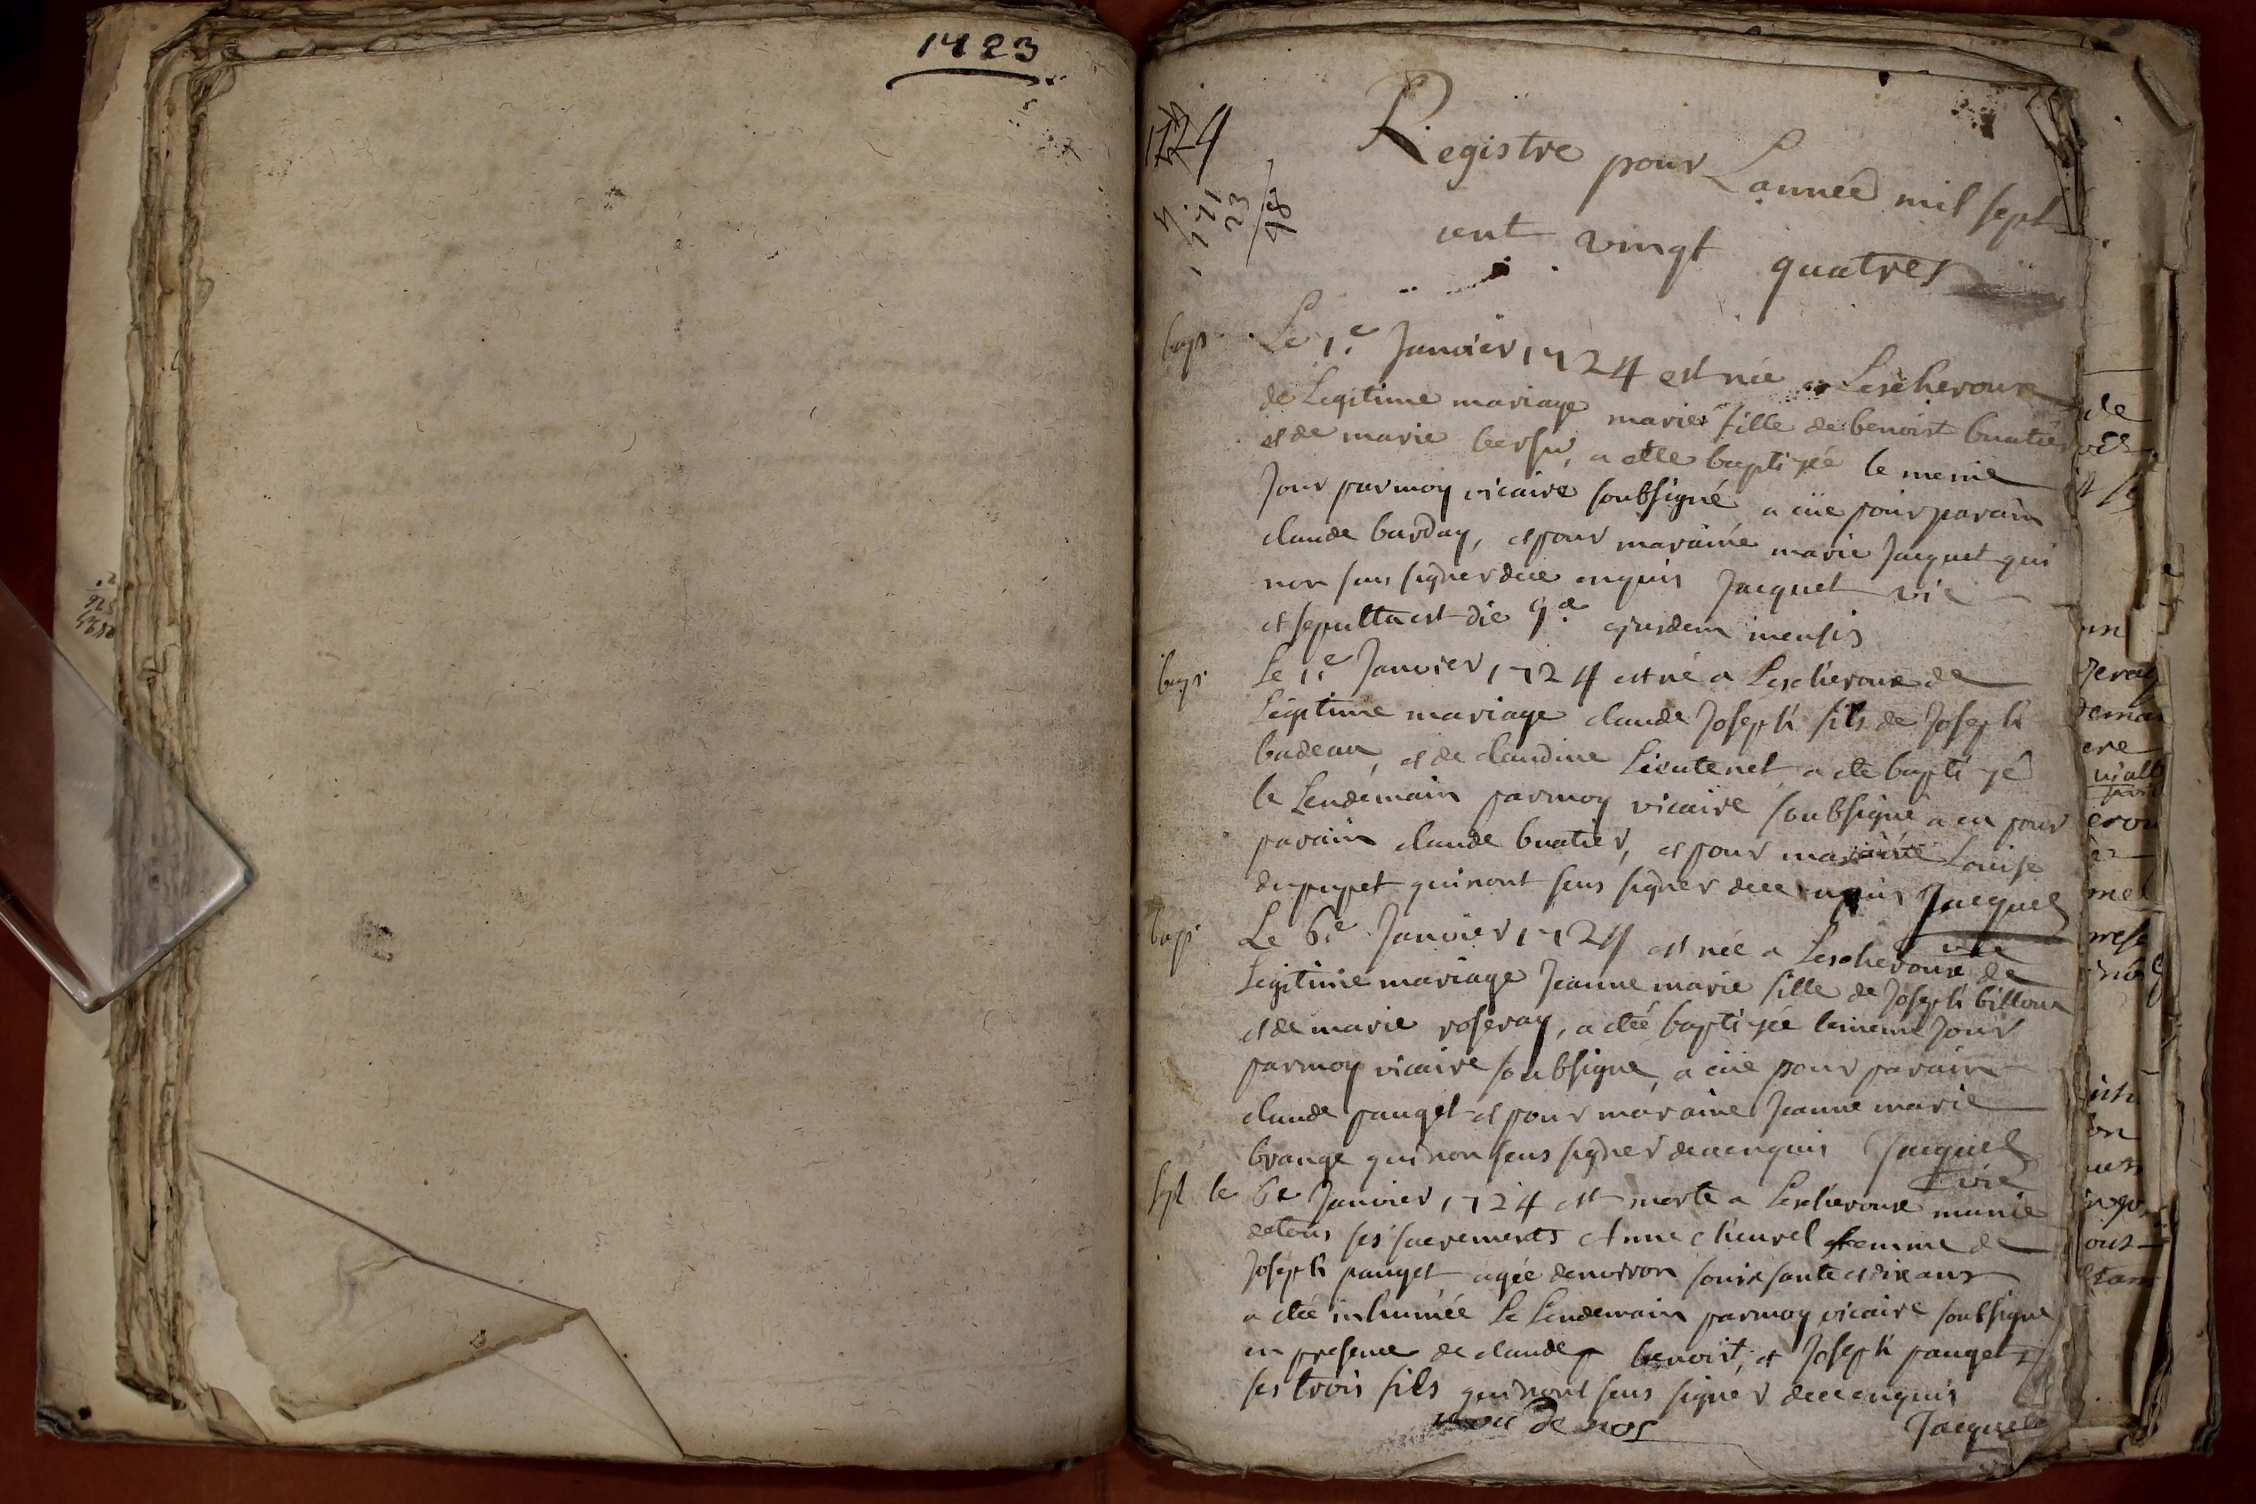 1723
1724
Registre pour Lannee mil sept
cent vingt quatres
bap. Le 1.e Janvier 1724 est née a Lescheroux
de Legitime mariage marie fille de benoist buatier
et de marie bersu, a etee baptizée le meme
Jour parmoy vicaire soubsigné a eüe pour parain
claude barday, et pour maraine marie Jacquet qui
non seus signer dece enquis Jacquet vic
et sepulta est die 9.a ejusdem mensis
bap. Le 1.e Janvier 1724 est né a Lescheroux de
Legitime mariage claude Joseph fils de Joseph
badeau, et de claudine Lieutenet a ete baptizé
le Lendemain parmoy vicaire soubsigné a eu pour
parain claude buatier, et pour maraine Louise
dupupet quinont seus signer dece enquis Jacquet
vic
bap. Le 6.e Janvier 1724 est née a Lescheroux de
Legitime mariage Jeanne marie fille de Joseph billoux
et de marie roseray, a etéé baptizée lememe Jour
parmoy vicaire soubsigne, a eüe pour parain
claude pauget et pour maraine Jeanne marie
brange qui non seus signer dece enquis Jacquet
vic
spl le 6e Janvier 1724 est morte a Lescheroux munie
detous ses sacrements Anne cheurel femme de
Joseph pauget agée denviron soixsante et dix ans
a etéé inhumée Le Lendemain parmoy vicaire soubsigne
en presence de claude benoist, et Joseph pauget
ses trois fils qui nont seus signer dece enquis
de nos
Jacquet